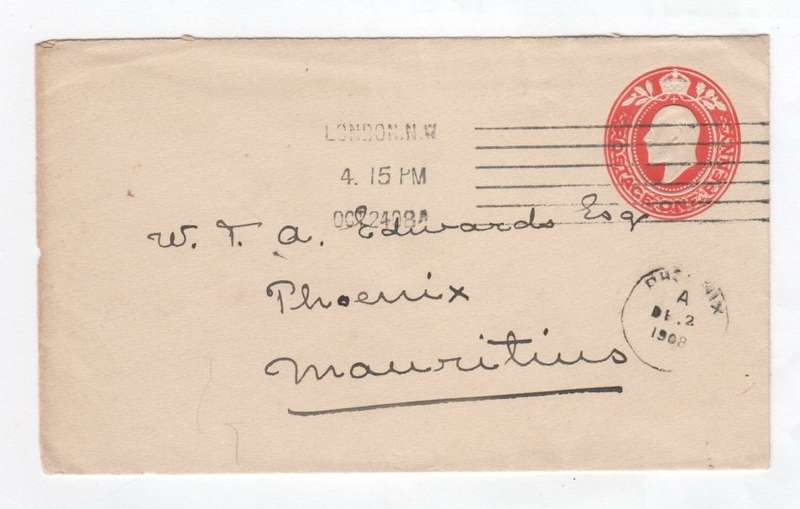 LONDON.N.W
4. 15 PM
OC 24 08A
POSTAGE ONE PENNY
W. T. A. Edwards Esq
Phoenix
Mauritius
PHOENIX
A
DE. 2
1908